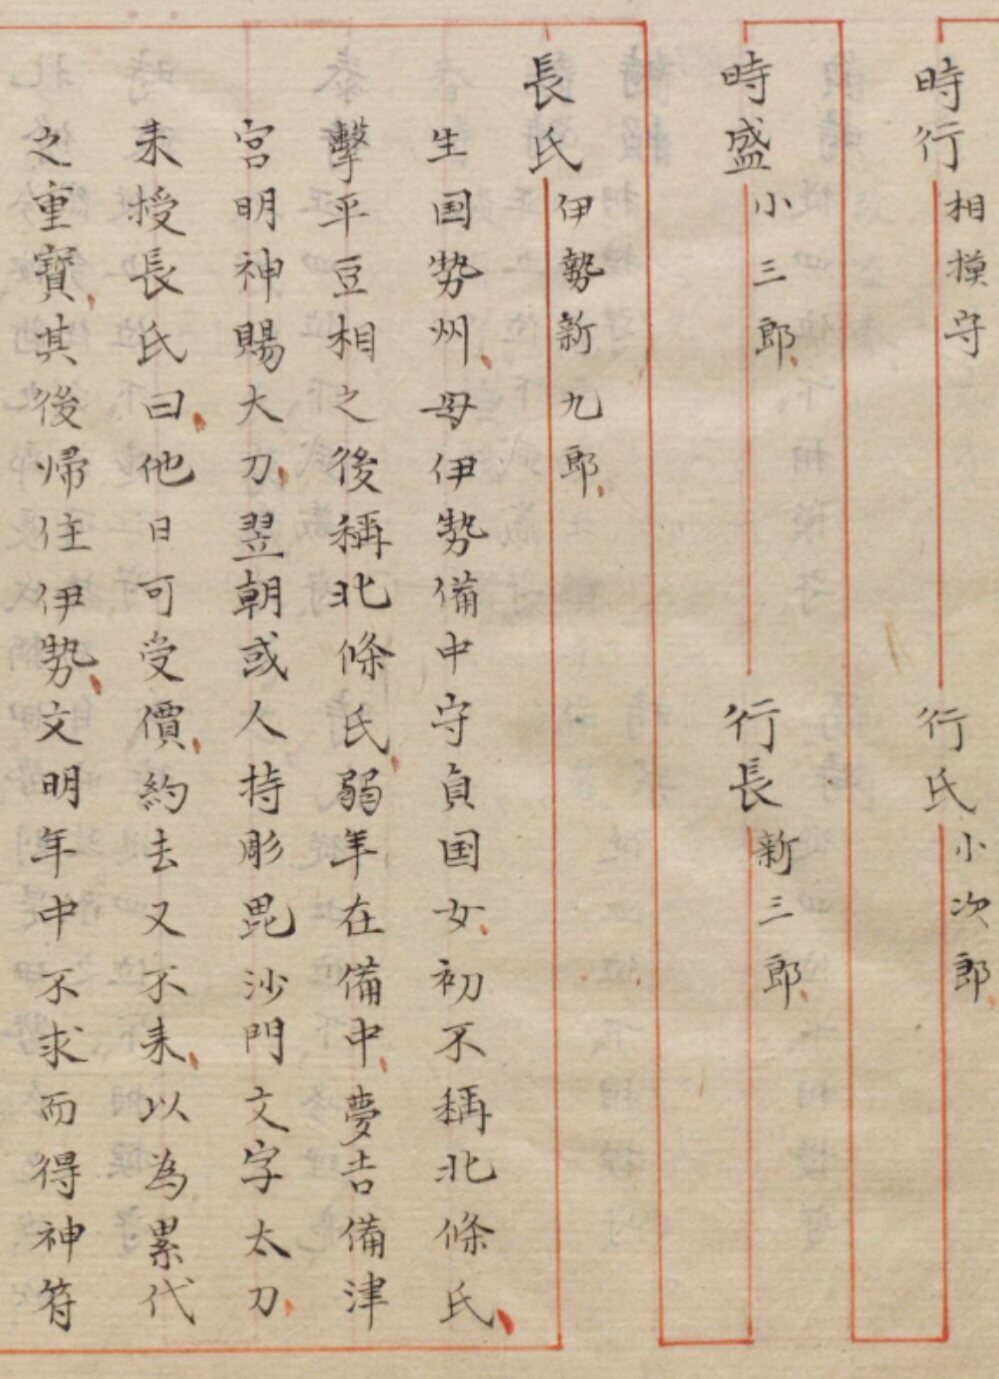 時行 相摸守
行氏 小次郎
時盛 小三郎
行長 新三郎
長氏 伊勢新九郎
生国勢州母伊勢備中守貞国女初不稱北條氏
擊平豆相之後稱北條氏弱年在備中夢吉備津
宮明神賜大刀翌朝或人持彫毘沙門文字太刀
来授長氏曰他日可受價約去又不来以為累代
之重寶其後帰住伊勢文明年中不求而得神符